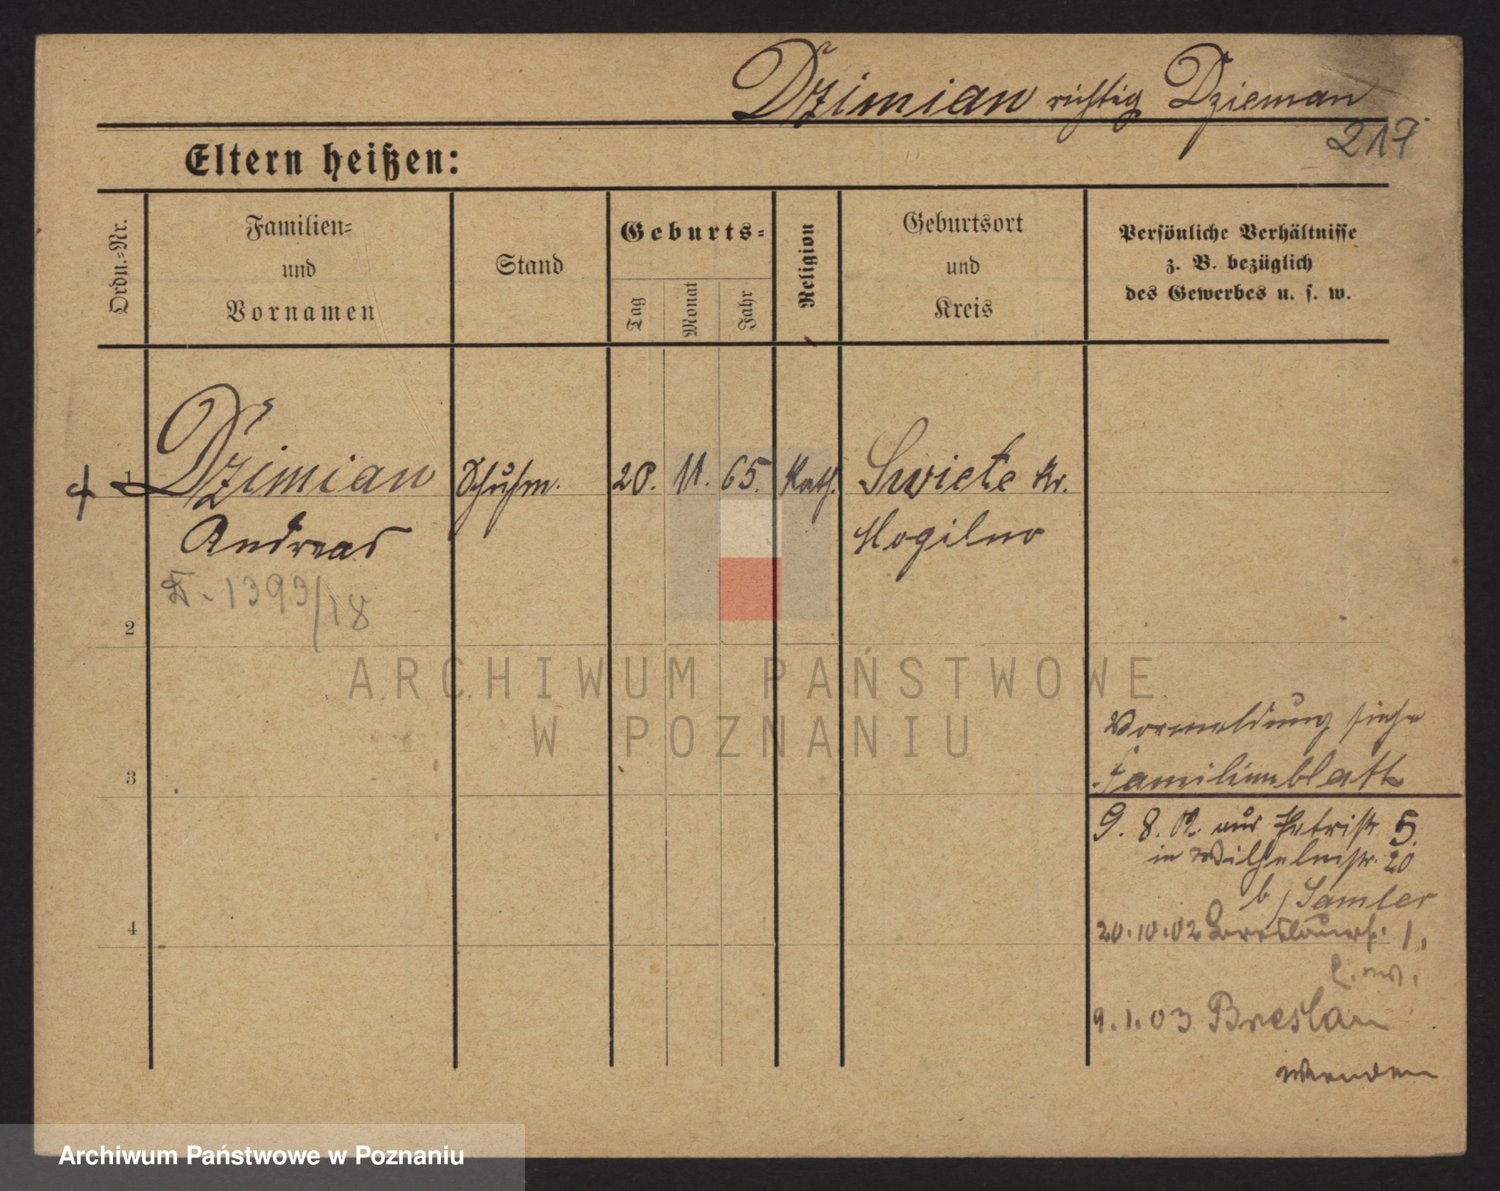 Dzimian richtig Dzieman
217
Eltern heißen:
Ordn.-Nr.
Familien-
und
Vornamen
Stand
Geburts-
Tag
Monat
Jahr
Religion
Geburtsort
und
Kreis
Persönliche Verhältnisse
z. B. bezüglich
des Gewerbes u. s. w.
1 Dzimian Schuhm. 20. 11. 65. Kath. Swiete Kr.
Andreas Mogilno
1393/18
2
ARCHIWUM PAŃSTWOWE
W POZNANIU
Vormeldung siehe
3
Familienblatt
9. 8. 02. aus Petristr. 5.
in Wilhelmstr. 20
b/ Samler
4
20.10.02 Breslauerstr. 1.
9.1.03 Breslau
wenden
Archiwum Państwowe w Poznaniu